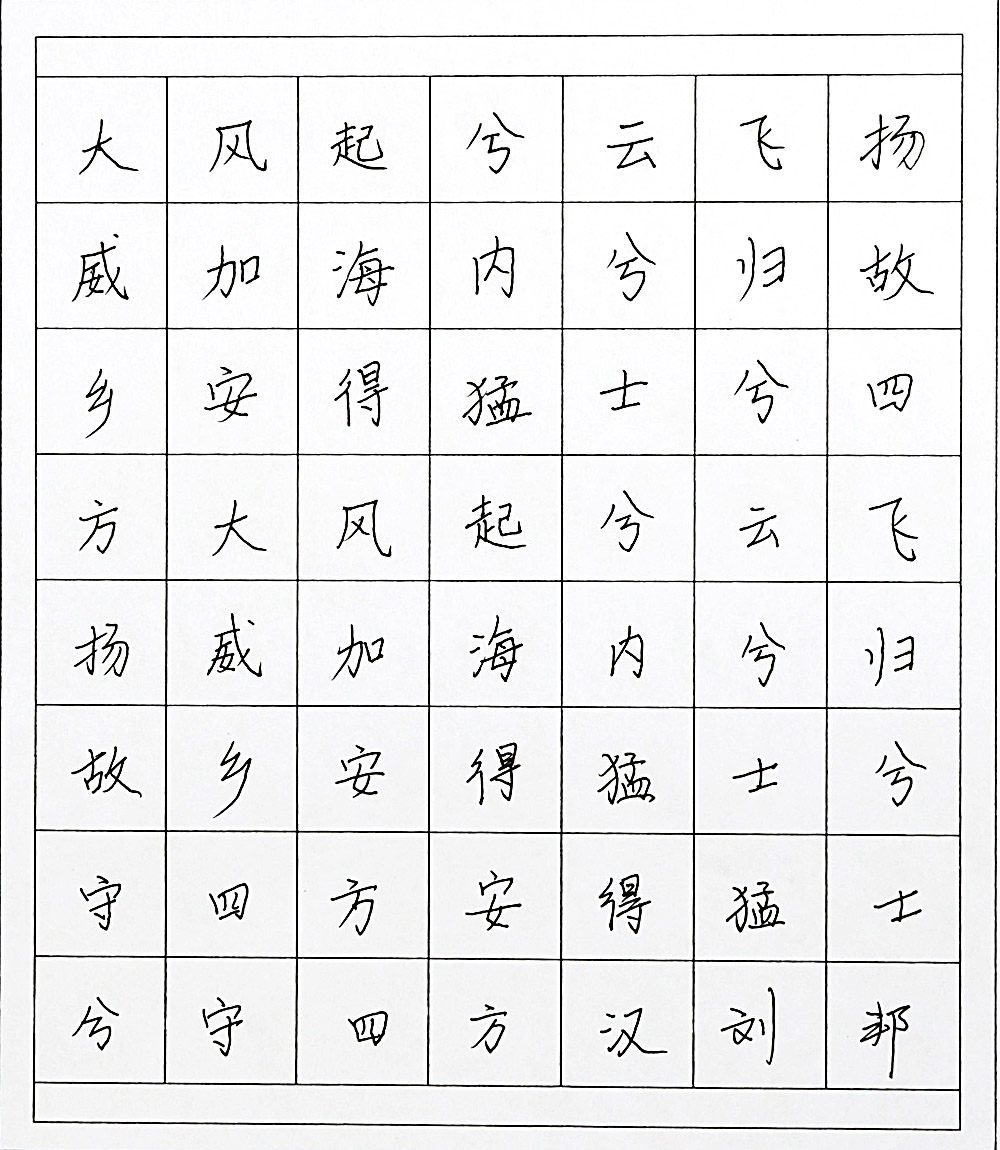 大风起兮云飞扬
威加海内兮归故
乡安得猛士兮四
方大风起兮云飞
扬威加海内兮归
故乡安得猛士兮
守四方安得猛士
兮守四方汉刘邦